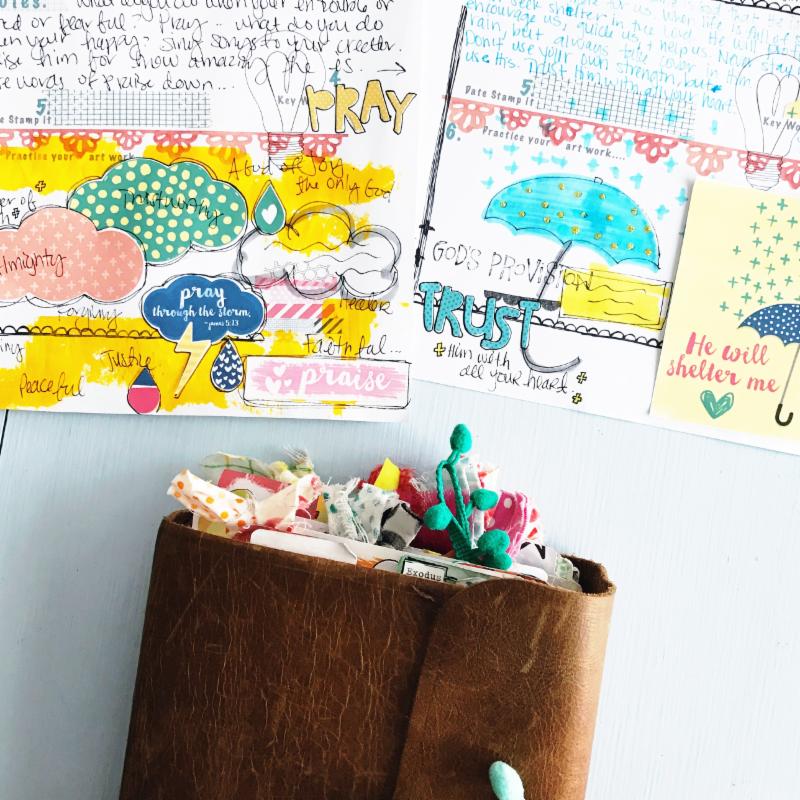 notes.
do when your
or fearful? Pray... what do you do
when your happy? Sing songs to your creator.
praise him for how amazing he is.
words of praise down...
4
5.
Date Stamp it
Key W
PRAY
Practice your art work....
A God of Joy
the only God
Trustworthy
Almighty
pray
through the storm.
~James 5:13
Healer
Forgiving
Justice
Faithful...
Peaceful
praise
seek shelter in the Lord. He will
encourage us, guide us & help us. Never stay in
rain, but always take cover in Him
Don't use your own strength, but
use His. Trust Him with all your heart.
Date Stamp it
5.
Key W
6.
Practice your art work....
GOD'S PROVISION
TRUST
Him with
all your heart.
He will
shelter me
Exodus